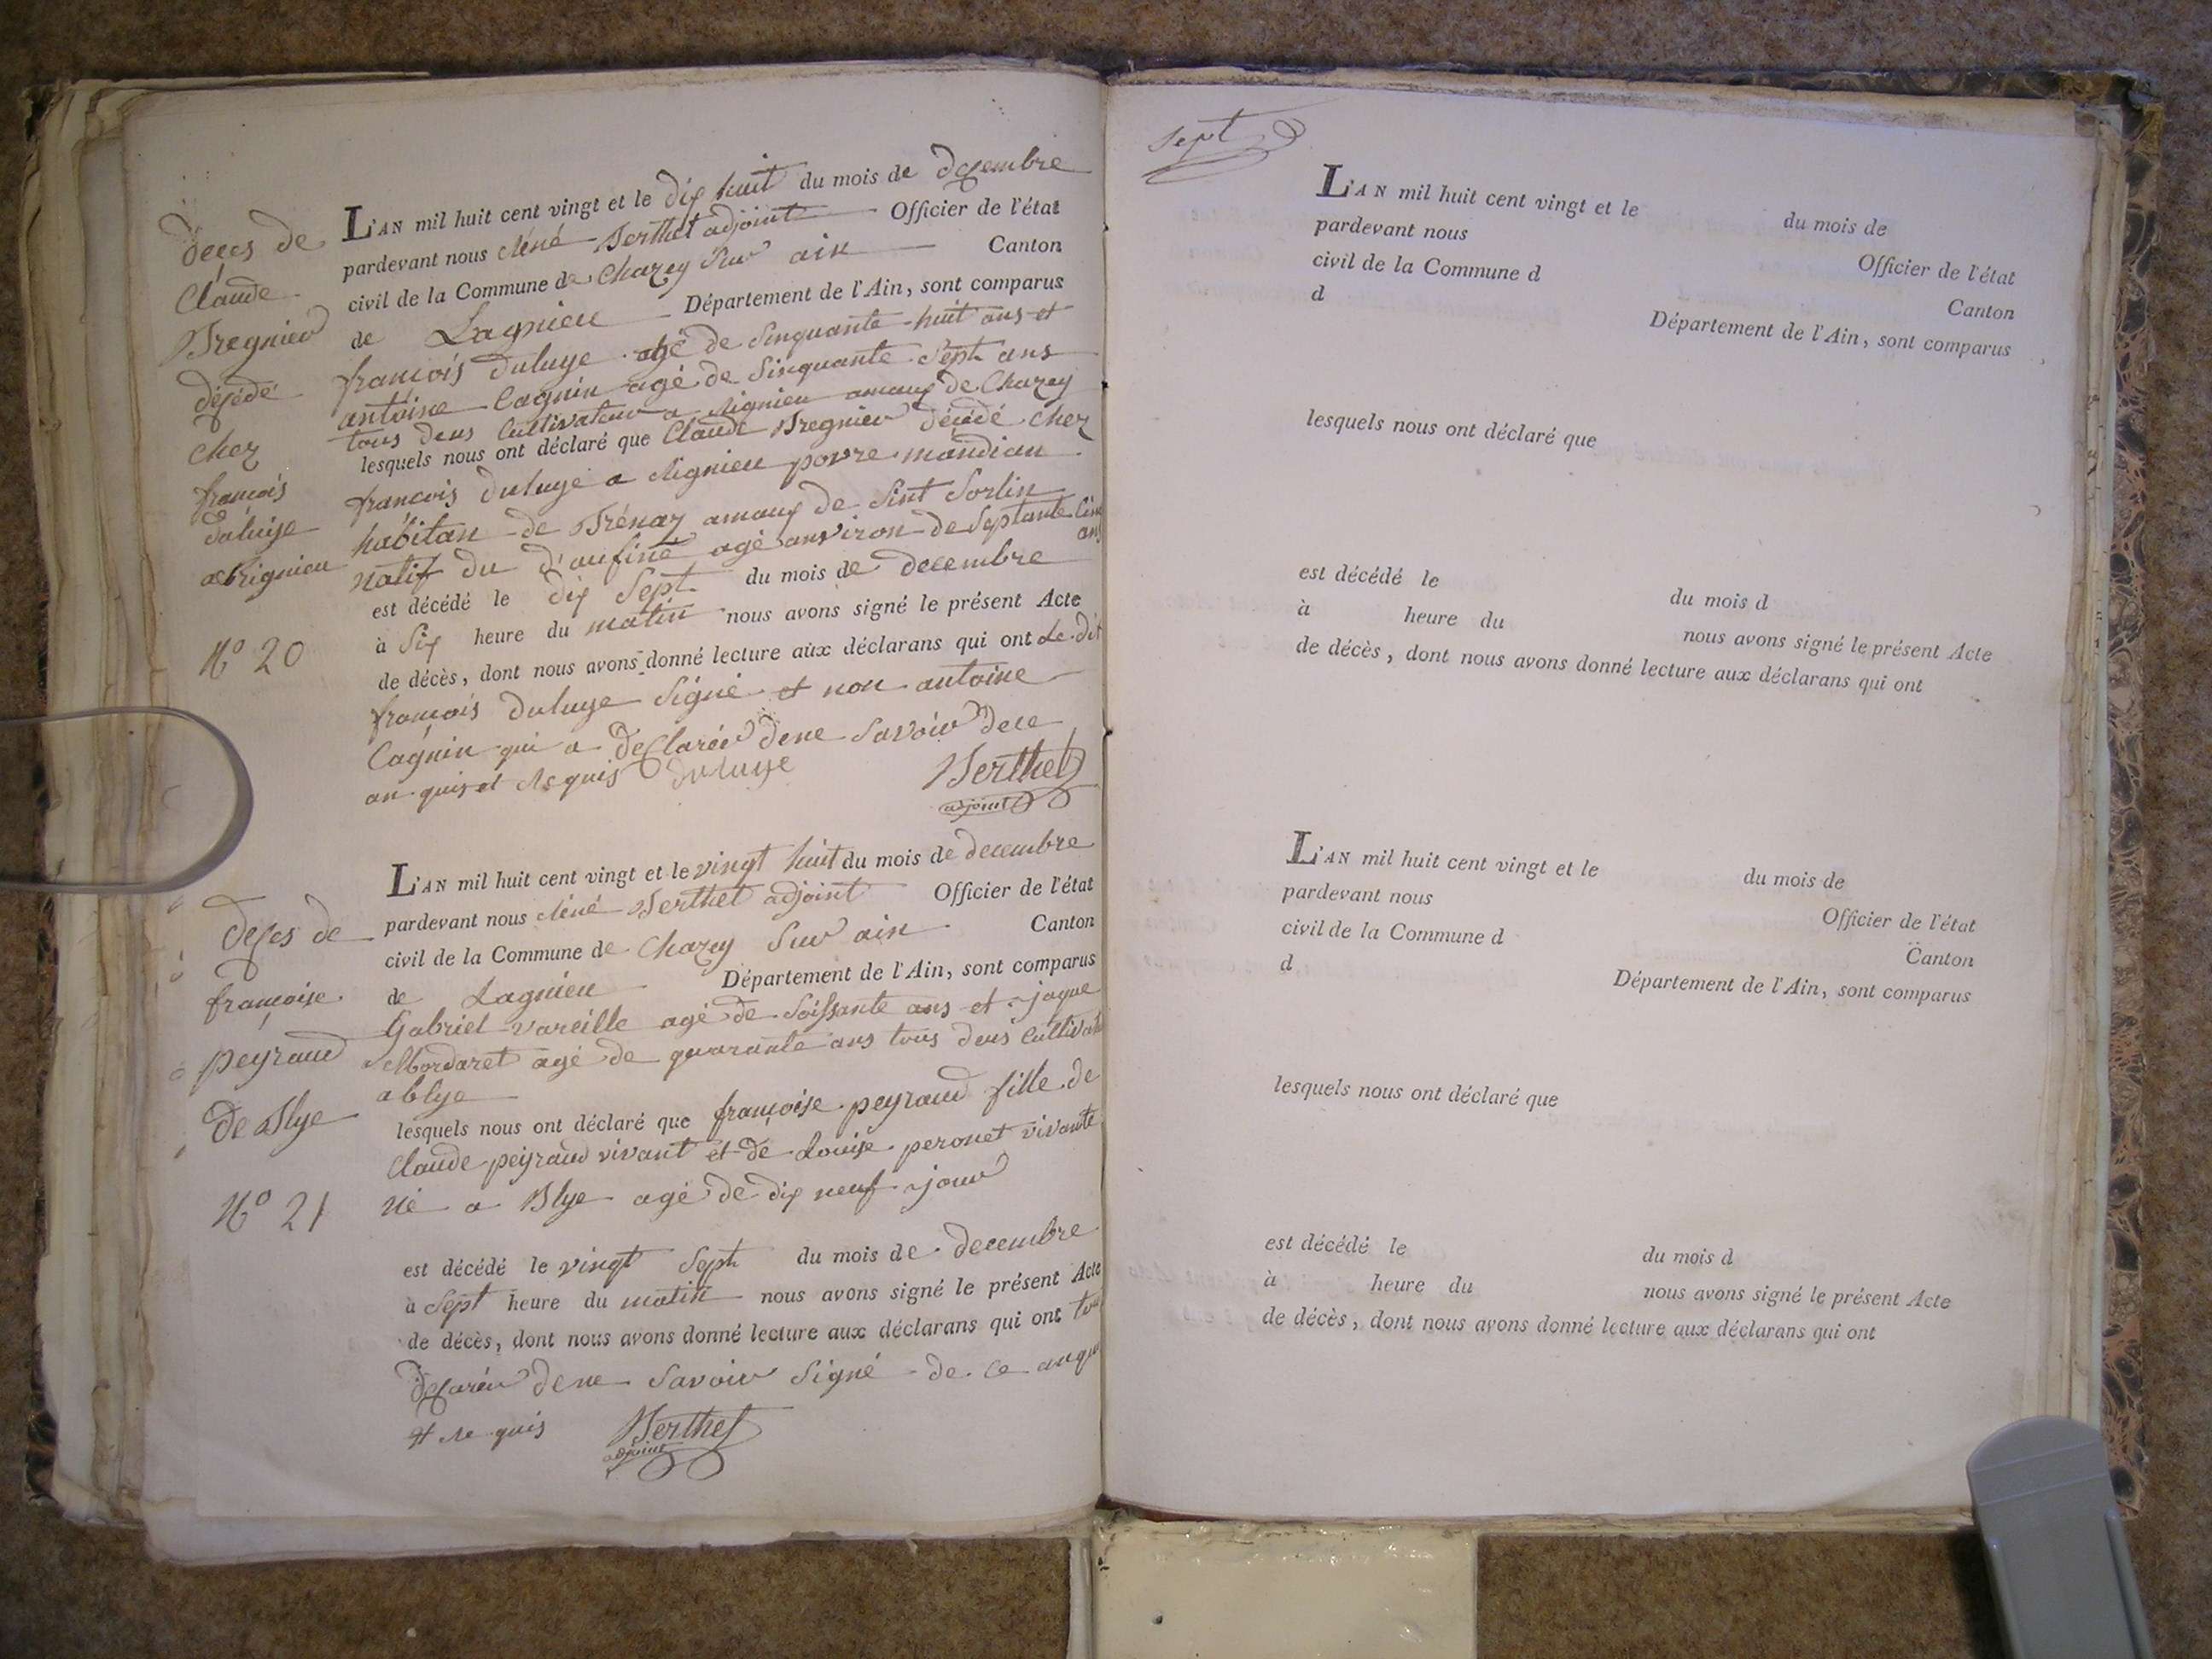 deces de
Claude
Bregnier
déçédé
chez
françois
duluye
a Rignieu
N° 20
L'AN mil huit cent vingt et le dix huit du mois de descembre
pardevant nous Réné Berthet adjoint Officier de l'état
civil de la Commune de Chazey Sur ain Canton
de Lagnieu Département de l'Ain, sont comparus
françois duluye agé de Sinquante huit ans et
antoine Cagnin agé de Sinquante Sept ans
tous deus Cultivateur a Rignieu amaux de Chazey
lesquels nous ont déclaré que Claude Bregnier décédé chez
françois duluye a Rignieu povre mandian
habitan de Trénay amaux de Sint Sorlin
natif du d'aufiné agé anviron de Septante Cinc
ans
est décédé le dix Sept du mois de decembre
à Six heure du matin nous avons signé le présent Acte
de décès, dont nous avons donné lecture aux déclarans qui ont Le dit
françois duluye Signé et non antoine
Cagnin qui a desclarér dene Savoir dece
an quis et Requis duluye Berthet
adjoint
deses de
françoise
peyraud
de Blye
N° 21
L'AN mil huit cent vingt et le vingt huit du mois de decembre
pardevant nous Réné Berthet adjoint Officier de l'état
civil de la Commune de Chazey Sur ain Canton
de Lagnieu Département de l'Ain, sont comparus
Gabriel vareille agé de Soissante ans et jaque
Mordaret agé de quarante ans tous deus Cultivateur
a blye
lesquels nous ont déclaré que françoise peyraud fille de
Claude peyraud vivant et de Louise peronet vivante
né a Blye agé de dix neuf jour
est décédé le vingt Sept du mois de decembre
à Sept heure du matin nous avons signé le présent Acte
de décès, dont nous avons donné lecture aux déclarans qui ont tous
desclarér dene Savoir Signé de ce anquis
et Re quis Berthet
adjoint
Sept
L'AN mil huit cent vingt et le du mois de
pardevant nous Officier de l'état
civil de la Commune d Canton
d Département de l'Ain, sont comparus
lesquels nous ont déclaré que
est décédé le du mois d
à heure du nous avons signé le présent Acte
de décès, dont nous avons donné lecture aux déclarans qui ont
L'AN mil huit cent vingt et le du mois de
pardevant nous Officier de l'état
civil de la Commune d Canton
d Département de l'Ain, sont comparus
lesquels nous ont déclaré que
est décédé le du mois d
à heure du nous avons signé le présent Acte
de décès, dont nous avons donné lecture aux déclarans qui ont